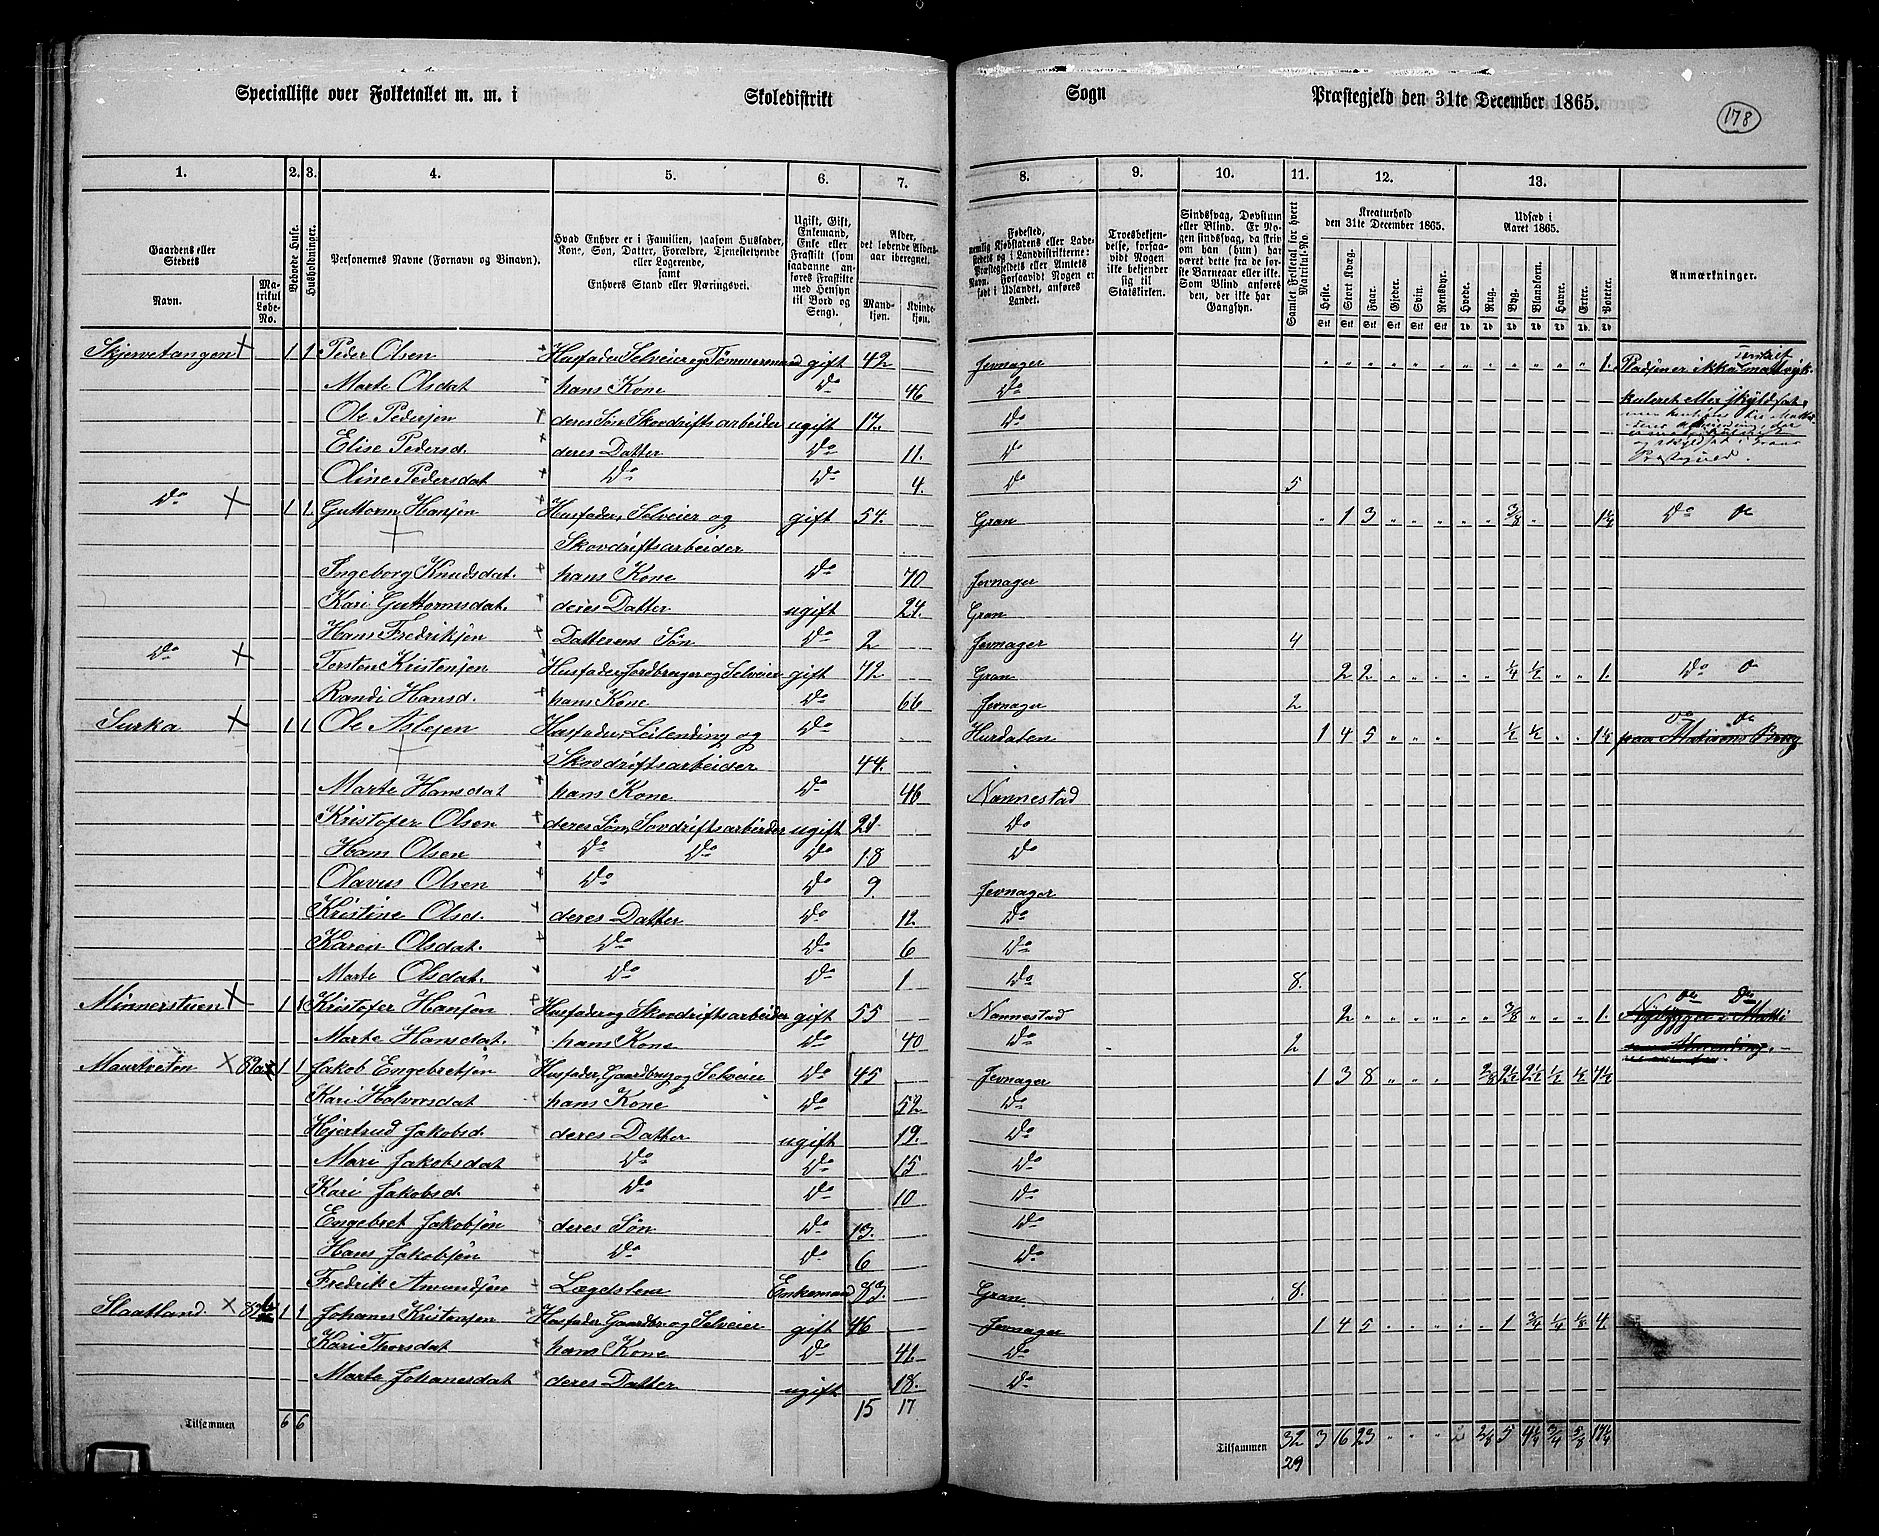 Specialliste over Folketallet m. m. i Skoledistrikt Sogn Præstegjeld den 31te December 1865.
178
1. 2. 3. 4. 5. 6. 7. 8. 9. 10. 11. 12. 13.
Gaardens eller Stedets
Navn.
Matrikul Løbe-No.
Beboede Huse.
Husholdninger.
Personernes Navne (Fornavn og Binavn).
Hvad Enhver er i Familien, saasom Husfader, Kone, Søn, Datter, Forældre, Tjenestetyende eller Logerende, samt Enhvers Stand eller Næringsvei.
Ugift, Gift, Enkemand, Enke eller Fraskilt (som saadanne anføres Fraskilte med Hensyn til Bord og Seng).
Alder, det løbende Alders-aar iberegnet.
Mand-kjøn. Kvinde-kjøn.
Fødested, nemlig Kjøbstadens eller Ladestedets og i Landdistrikterne: Præstegjeldets eller Amtets Navn. Forsaavidt Nogen er født i Udlandet, anføres Landet.
Troesbekjendelse, forsaavidt Nogen ikke bekjender sig til Statskirken.
Sindssvag, Døvstum eller Blind. Er Nogen sindssvag, da skrives om han (hun) har været dette fra de første Barneaar eller ikke. Som Blind anføres den, der ikke har Gangsyn.
Samlet Folketal for hvert Matrikul-No.
Kreaturhold den 31te December 1865.
Heste. Stort Kvæg. Faar. Gjeder. Svin. Rensdyr.
Udsæd i Aaret 1865.
Hvede. Rug. Byg. Blandkorn. Havre. Erter. Poteter.
Anmærkninger.
Skjervetangen 1 1 Peder Olsen Husfader, Selveier og Tømmermand gift 42 Jevnager 1.
Marte Olsdat hans Kone Do 46 Do
Ole Pedersen deres Søn Skovdriftsarbeider ugift 17. Do
Elise Pedersd. deres Datter Do 11. Do
Oline Pedersdat Do Do 4. Do 5
Do 1 1. Guttorm Hansen Husfader, Selveier og gift 54. Gran 1 3 3/8 1 1/2 Do
Skovdriftsarbeider
Ingeborg Knudsdat. hans Kone Do 70 Jevnager
Kari Guttormsdat. deres Datter ugift 24. Gran
Hans Fredriksen Datterens Søn Do 2 Jevnager 4
Do Torsten Kristensen Husfader, Jordbruger og Selveier gift 42 Gran 2 2 1/4 1/2 1. Do
Randi Hansd. hans Kone Do 66 Jevnager 2
Surka 1 1 Ole Aslesen Husfader, Leilending og Do Hurdalen 1 4 5 1/2 1/2
Skovdriftsarbeider 44.
Marte Hansdat hans Kone Do 46 Nannestad
Kristofer Olsen deres Søn, Sovdriftsarbeider ugift 21. Do
Hans Olsen Do Do Do 18 Do
Olavus Olsen Do Do 9. Jevnager
Kristine Olsd. deres Datter Do 12 Do
Karen Olsdat. Do Do 6 Do
Marte Olsdat. Do Do 1 Do 8.
Minnerstuen 1 1 Kristofer Hansen Husfader og Skovdriftsarbeider gift 55 Nannestad 2 3/8 1. Do
Marte Hansdat. hans Kone Do 40 Do 2
82a 1 1 Jakob Engebretsen Husfader, Gaardbrug og Selveier Do 45 Jevnager 1 3 8
Kari Halvorsdat hans Kone Do 52 Do
Hjertrud Jakobsd. deres Datter ugift 19. Do
Mari Jakobsdat Do Do 15 Do
Kari Jakobsd. Do Do 10 Do
Engebret Jakobsen deres Søn Do 13. Do
Hans Jakobsen Do Do 6 Do
Fredrik Amundsen Lægdslem Enkemand 73. Gran 8.
Slaatland. 82 1 1 Johannes Kristensen Husfader, Gaardbr. og Selveier gift 46 Jevnager 1 4 5 1 3/4 1/4 1/8 4.
Kari Thorsdat hans Kone Do 41. Do
Marte Johanesdat deres Datter ugift 18. Do
15 17
Tilsammen 6 6 Tilsammen 32 3 16 23
29